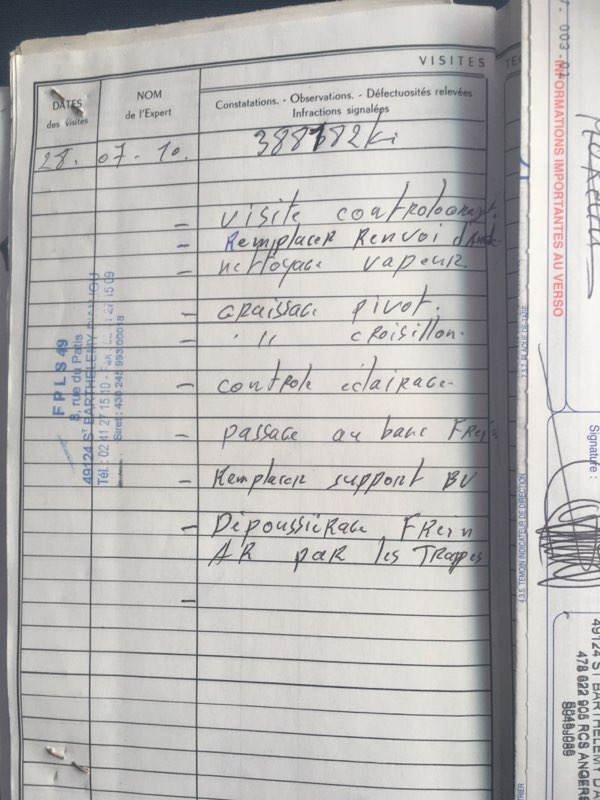 VISITES
DATES
des visites
NOM
de l'Expert
Constatations. - Observations. - Défectuosités relevées
Infractions signalées
28. 07. 10.
388182 Ki
- visite
- Remplacer Renvoi
- nettoyage vapeur
- graissage pivot.
- " croisillon.
- controle eclairage.
- passage au banc Frein
- Remplacer support BV
- Dépoussierage Frein
AR par les Trappes
-
FPLS 49
8, rue du Patis
49124 ST BARTHELEMY D'ANJOU
Tél.: 02 41 27 15 10 -
Siret: 430 245 993 00018
TE
INFORMATIONS IMPORTANTES AU VERSO
Signature :
4.3.5. TEMOIN INDICATEUR DE DIRECTION
49124 ST BARTHELEMY D'A
478 622 905 RCS ANGERS